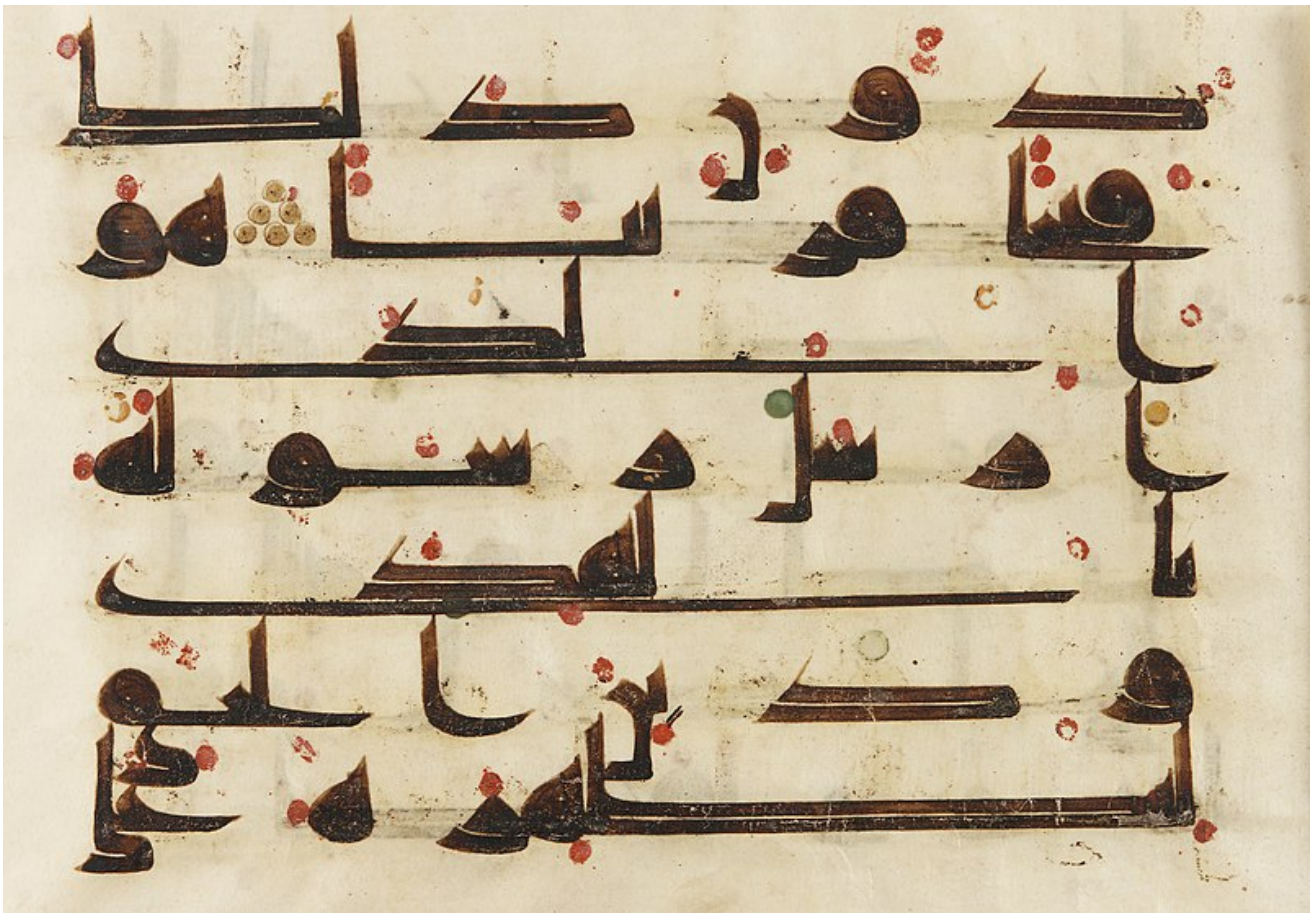 دون ذلك
فتحا قريبا هو
الذى
ارسل رسوله
بالهدى
ودين الحق
ليظهره على